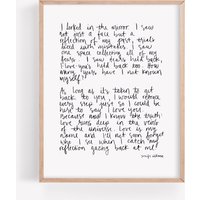 I looked in the mirror. I saw
not just a face but a
reflection of my past, trials
lived with mistakes. I saw
one space reflecting all of my
fears. I saw tears held back,
I love you's held back too. How
many years have I not known
myself?
As long as it's taken to get
back to you, I would relive
every step just so I could be
here to say I love you.
Because now I know the truth:
love runs deep in the veins
of the universe. Love is my
name and I'll not soon forget
who I see when I catch my
reflection gazing back at me!